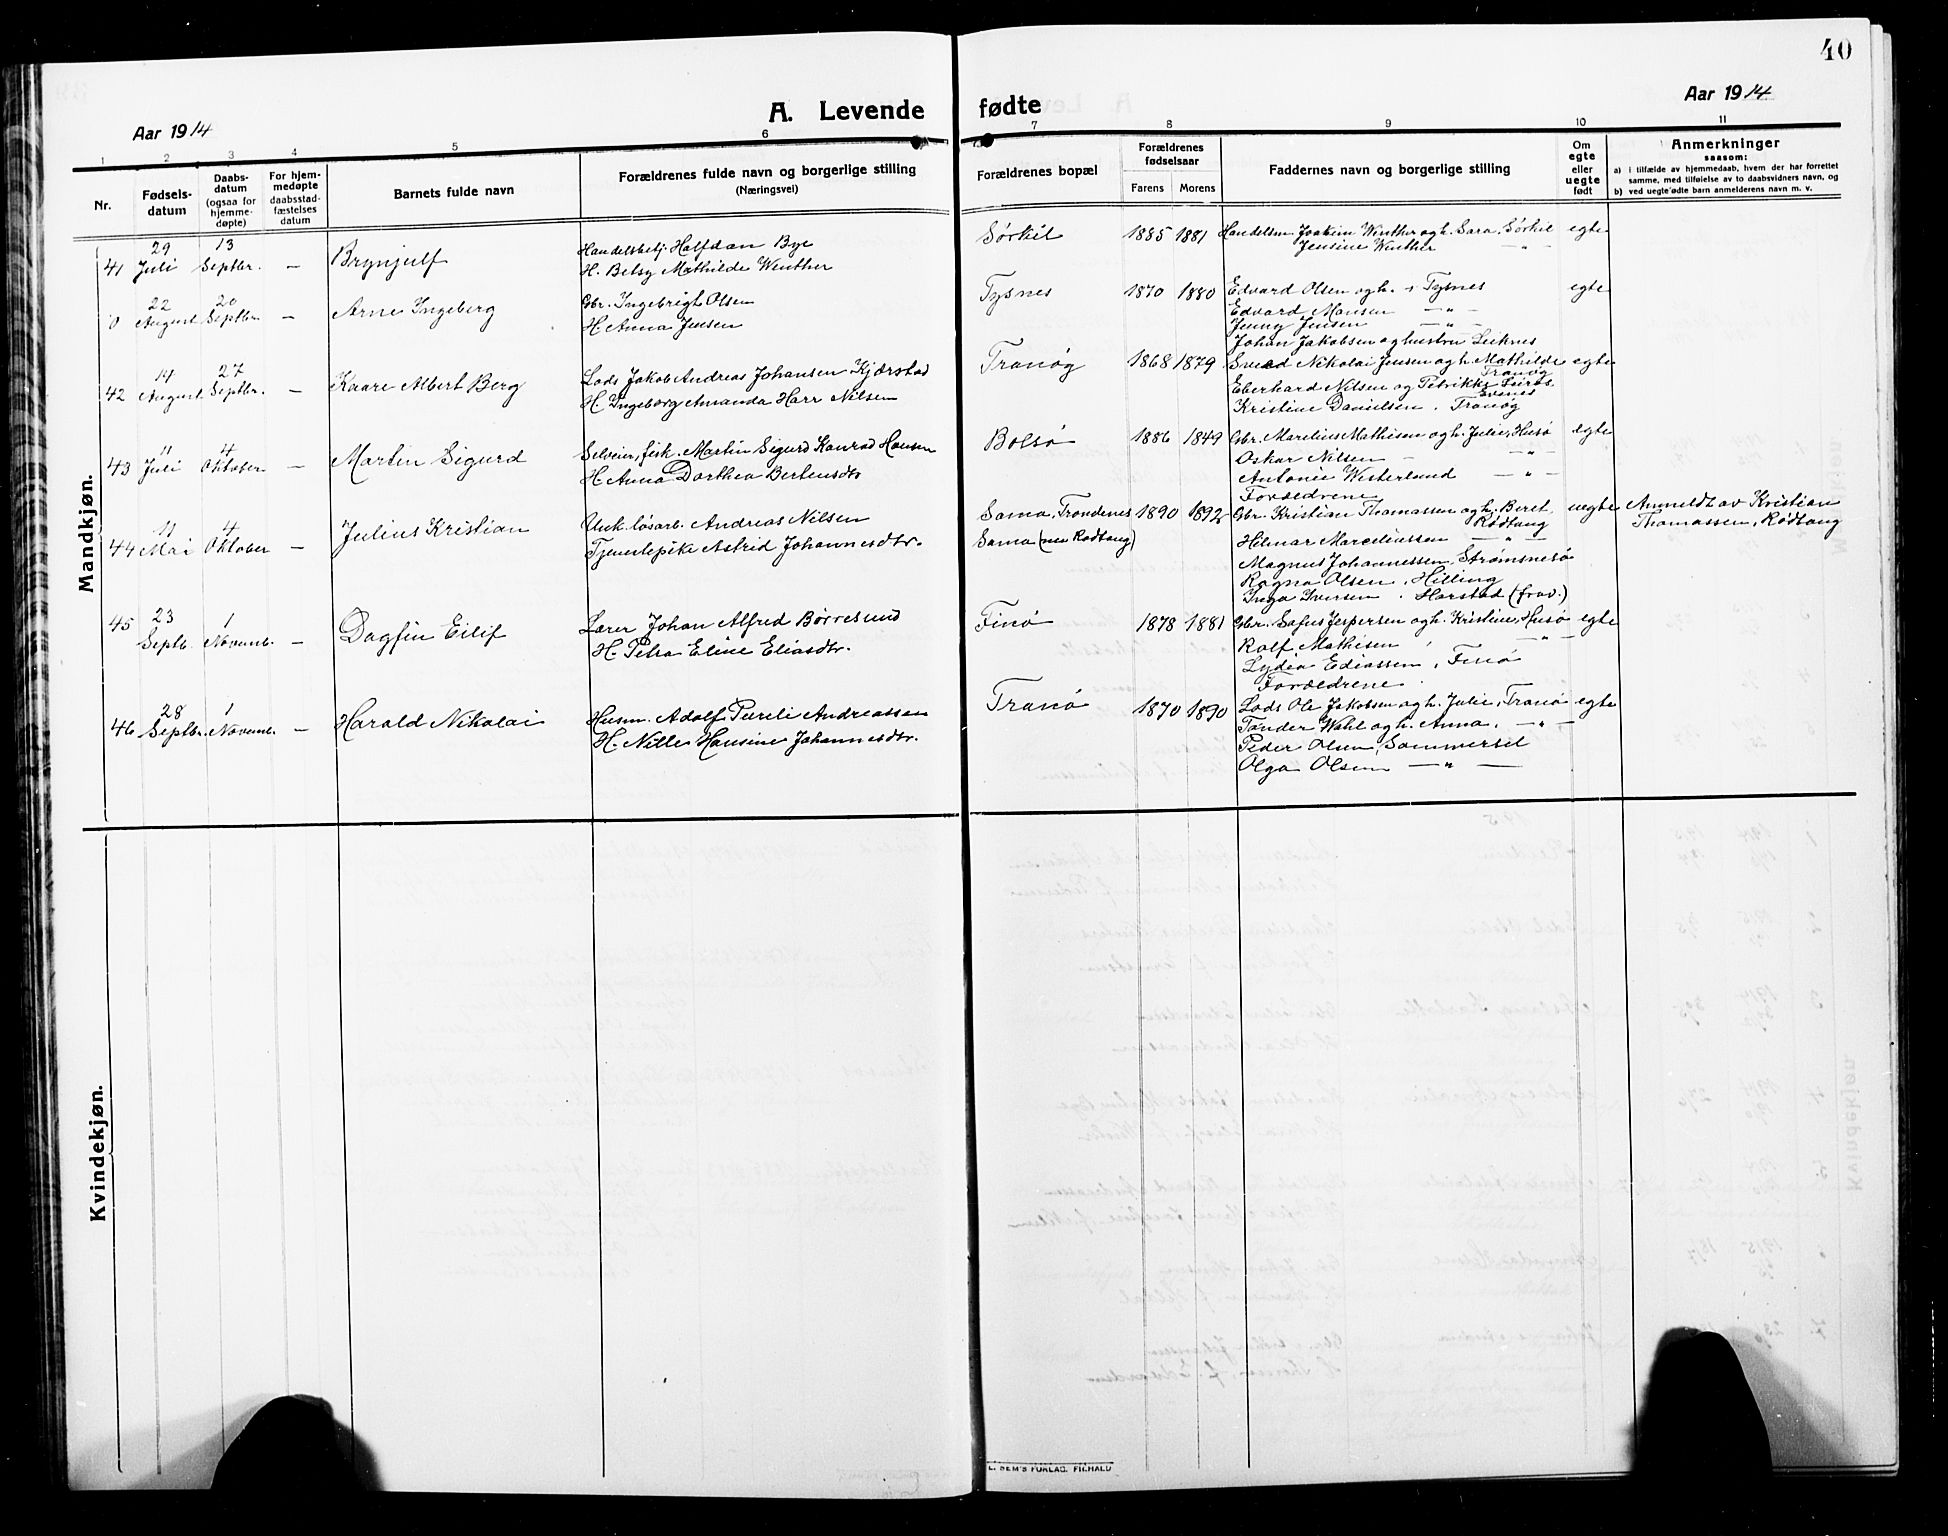 40
A. Levende fødte
Aar 1914
Aar 1914
1 2 3 4 5 6 7 8 9 10 11
Nr.
Fødsels-
datum
Daabs-
datum
(ogsaa for
hjemme-
døpte)
For hjem-
medøpte
daabsstad-
fæstelses
datum
Barnets fulde navn
Forældrenes fulde navn og borgerlige stilling
(Næringsvei)
Forældrenes bopæl
Forældrenes
fødselsaar
Farens Morens
Faddernes navn og borgerlig stilling
Om
egte
eller
uegte
født
Anmerkninger
saasom:
a) i tilfælde av hjemmedaab, hvem der har forrettet
samme, med tilføielse av to daabsvidners navn, og
b) ved uegte fødte barn anmelderens navn m. v.
Mandkjøn.
41 29 Juli 13 Septbr. – Brynjulf
Handelsbetj. Halfdan Bye
H. Betsy Mathilde Winther
Sørkil 1885 1881
Handelsm. Joakim Winther og h. Sara, Sørkil
Jensine Winther — " —
egte
0 22 August 20 Septbr – Arne Ingeberg
Gbr. Ingebrigt Olsen
H. Anna Jensen
Tysnes 1870 1880
Edvard Olsen og h. Tysnes
Edvard Monsen — " —
Jenny Jensen — " —
Johan Jakobsen og hustru Leiknes
egte
42 14 August 27 Septbr. – Kaare Albert Berg
Lods Jakob Andreas Johansen Kjærstad
H. Ingeborg Amanda Harr Nilsen
Tranøg 1868 1879
Nikolai Jensen og h. Mathilde
Tranøg
Eberhard Nilsen og Petrikke
Evenes
Kristine Danielsen, Tranøg
egte
43 11 Juli 4 Oktober – Martin Sigurd
Selveier, fisk. Martin Sigurd Konrad Hansen
H. Anna Dorthea Bertensdtr
Bolsø 1886 1849
Gbr. Marelius Mathisen og h. Julie, Husø
Oskar Nilsen — " —
Antonie Westerlund — " —
Forældrene
egte
44 11 Mai 4 Oktober – Julius Kristian
Unk. løsarb. Andreas Nilsen
Tjenestepike Astrid Johannesdtr.
Sama, Trondenes 1890 1892
Sama (nu Rødtang)
Gbr. Kristian Thomassen og h. Beret,
Rødtang
Hilmar Marceliussen — " —
Magnus Johannessen, Strømsnesø
Ragna Olsen, Hilling
Inga Iversen, Harstad (frav.)
uegte
Anmeldt av Kristian
Thomassen, Rødtang
45 23 Septb. 1 Novemb. – Dagfin Eilif
Lærer Johan Alfred Børresund
H. Petra Eline Eliasdtr.
Finø 1878 1881
Gbr. Sofus Jespersen og h. Kristine, Husø
Rolf Mathisen — " —
Lydia Ediassen, Finø
Forældrene
egte
46 28 Septbr. 1 Novemb. – Harald Nikolai
Husm. Adolf Pareli Andreassen
H. Nille Hansine Johannesdtr.
Tranø 1870 1890
Lods Ole Jakobsen og h. Julie, Tranø
Tønder Wahl og h. Anna, — " —
Peder Olsen, Sommersel
Olga Olsen — " —
egte
Kvindekjøn.
E. SEM'S FORLAG, FR.HALD